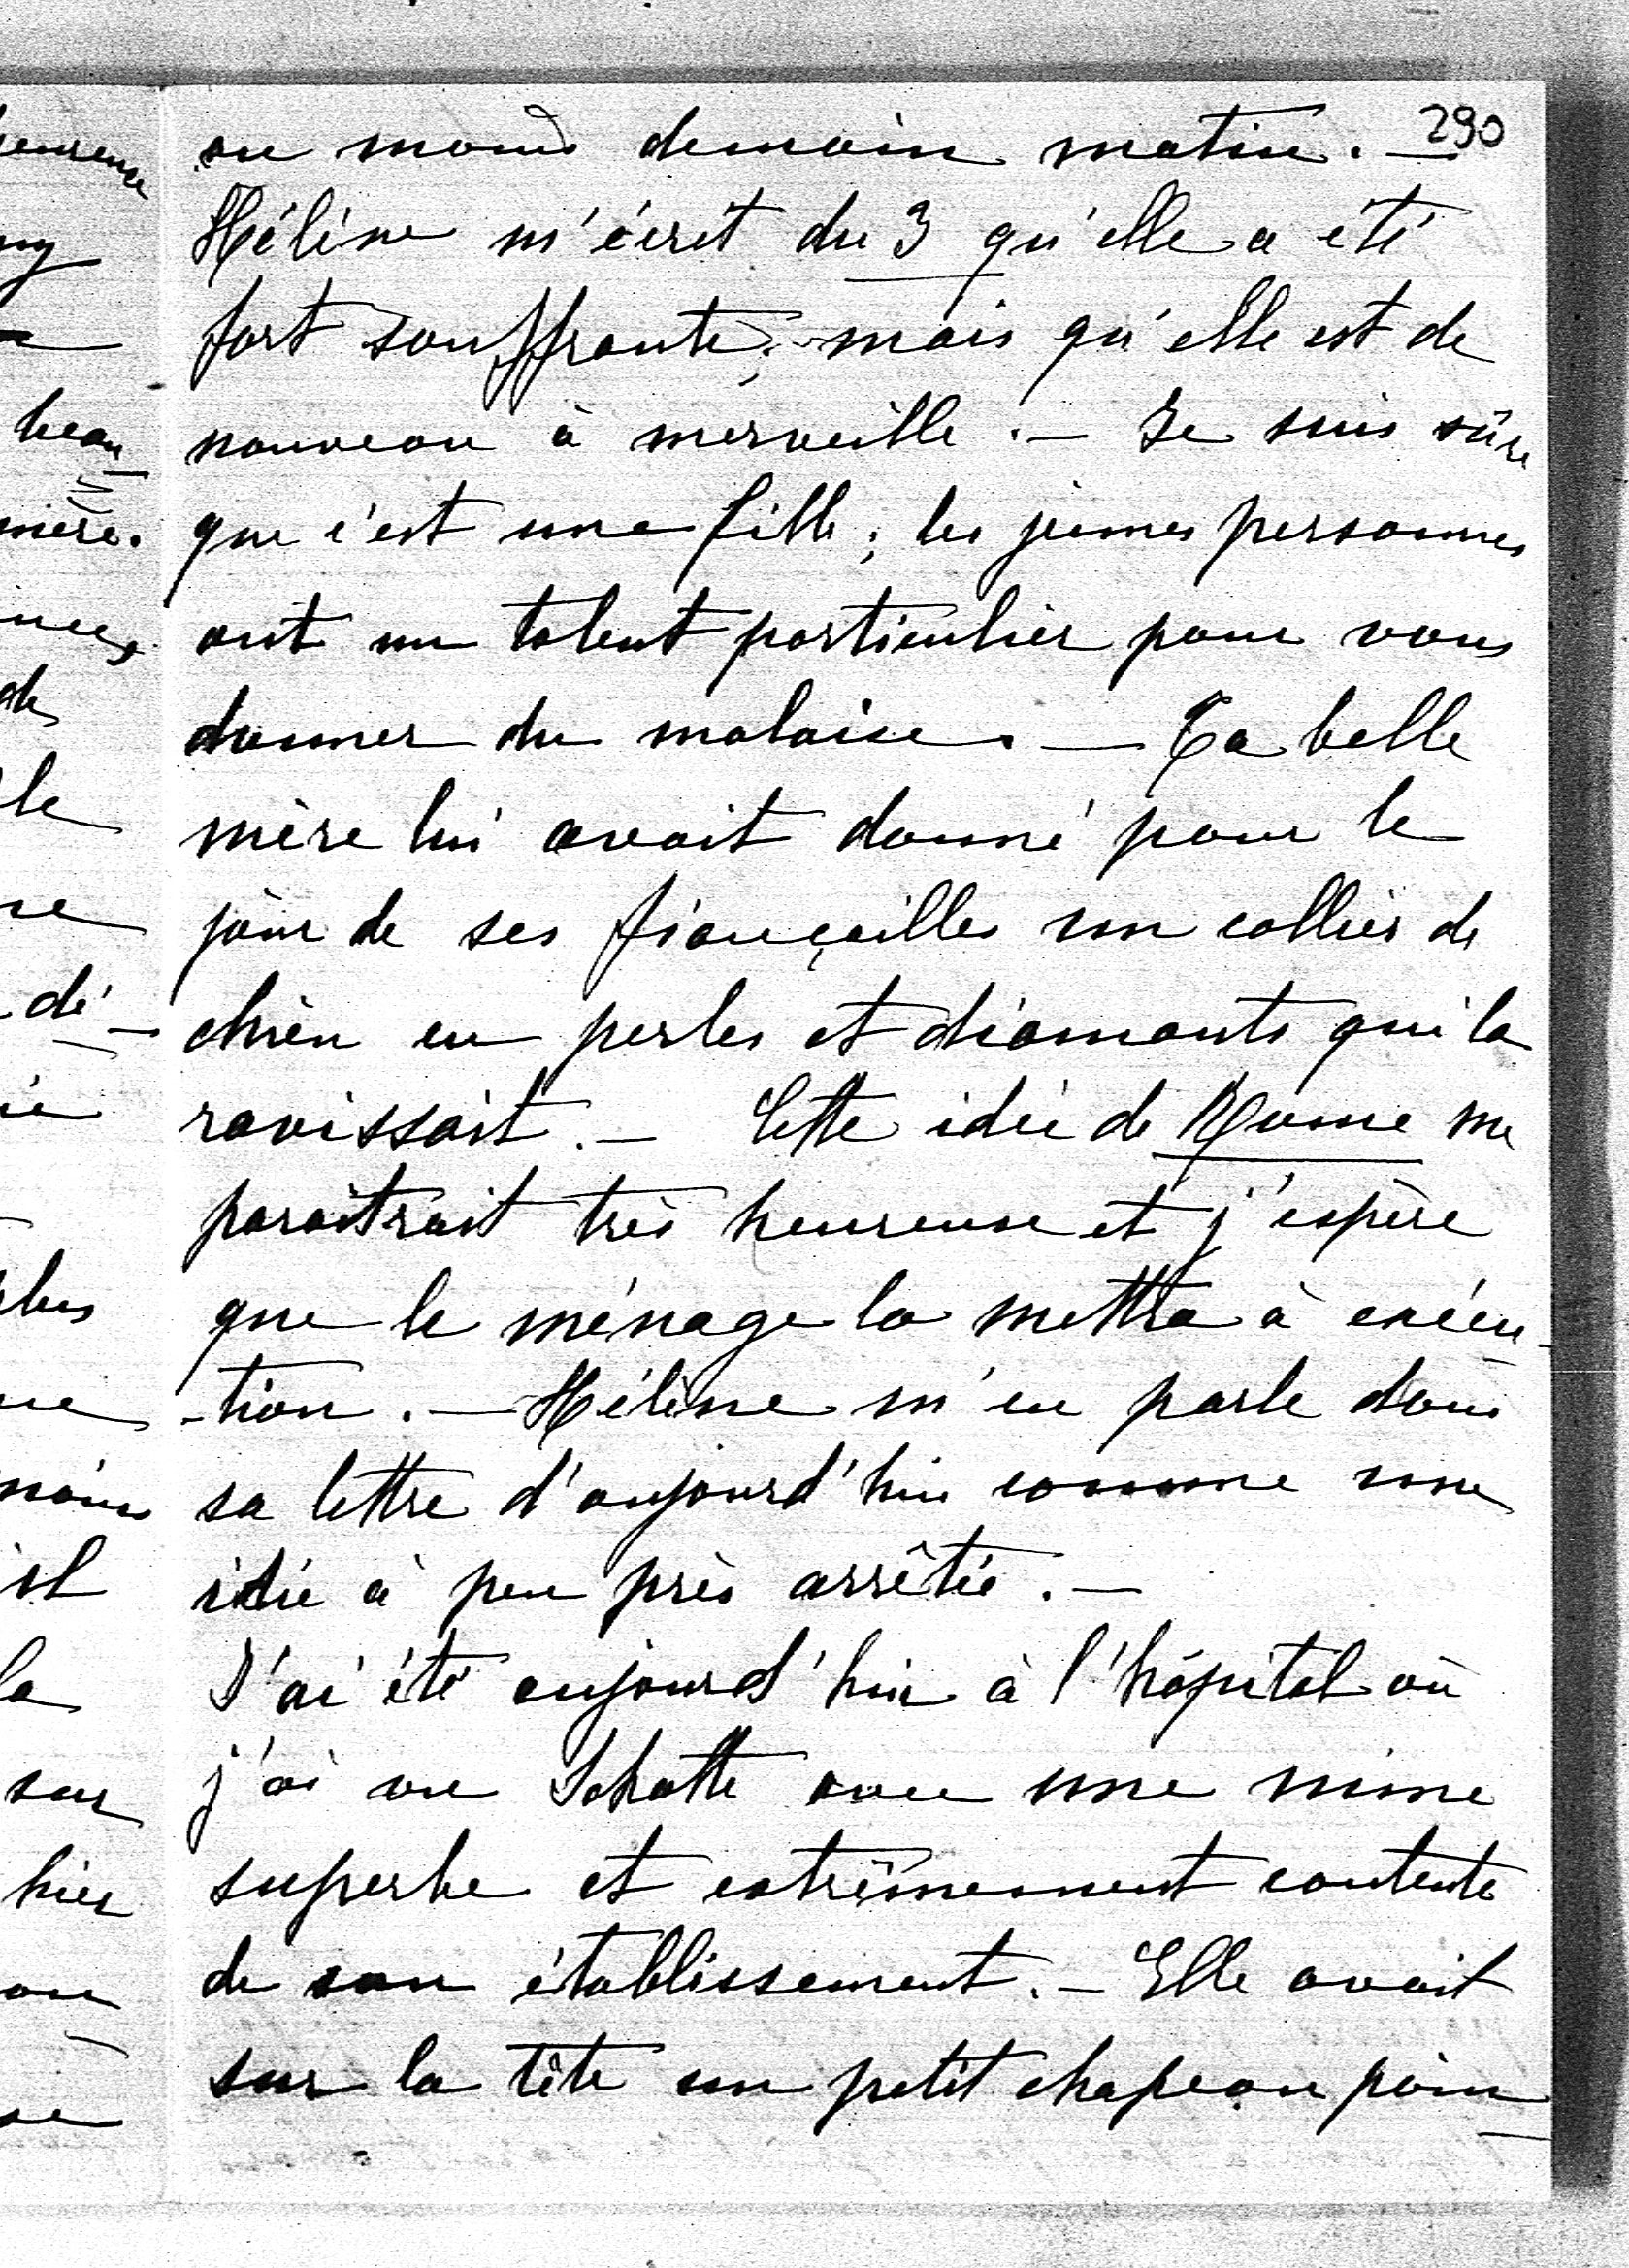 290
au monde demain matin. —
Hélène m'écrit du 3 qu'elle a été
fort souffrante, mais qu'elle est de
nouveau à merveille. — Je suis sûre
que c'est une fille; les jeunes personnes
ont un talent particulier pour vous
donner du malaise. — Ta belle
mère lui avait donné pour le
jour de ses fiançailles un collier de
chien en perles et diamants qui la
ravissait. — Cette idée de Rome me
paraîtrait très heureuse et j'espère
que le ménage la mettra à exécu-
-tion. — Hélène m'en parle dans
sa lettre d'aujourd'hui comme une
idée à peu près arrêtée. —
J'ai été aujourd'hui à l'hôpital où
j'ai vu Schatte avec une mine
superbe et extrêmement contente
de son établissement. — Elle avait
sur la tête un petit chapeau poin-